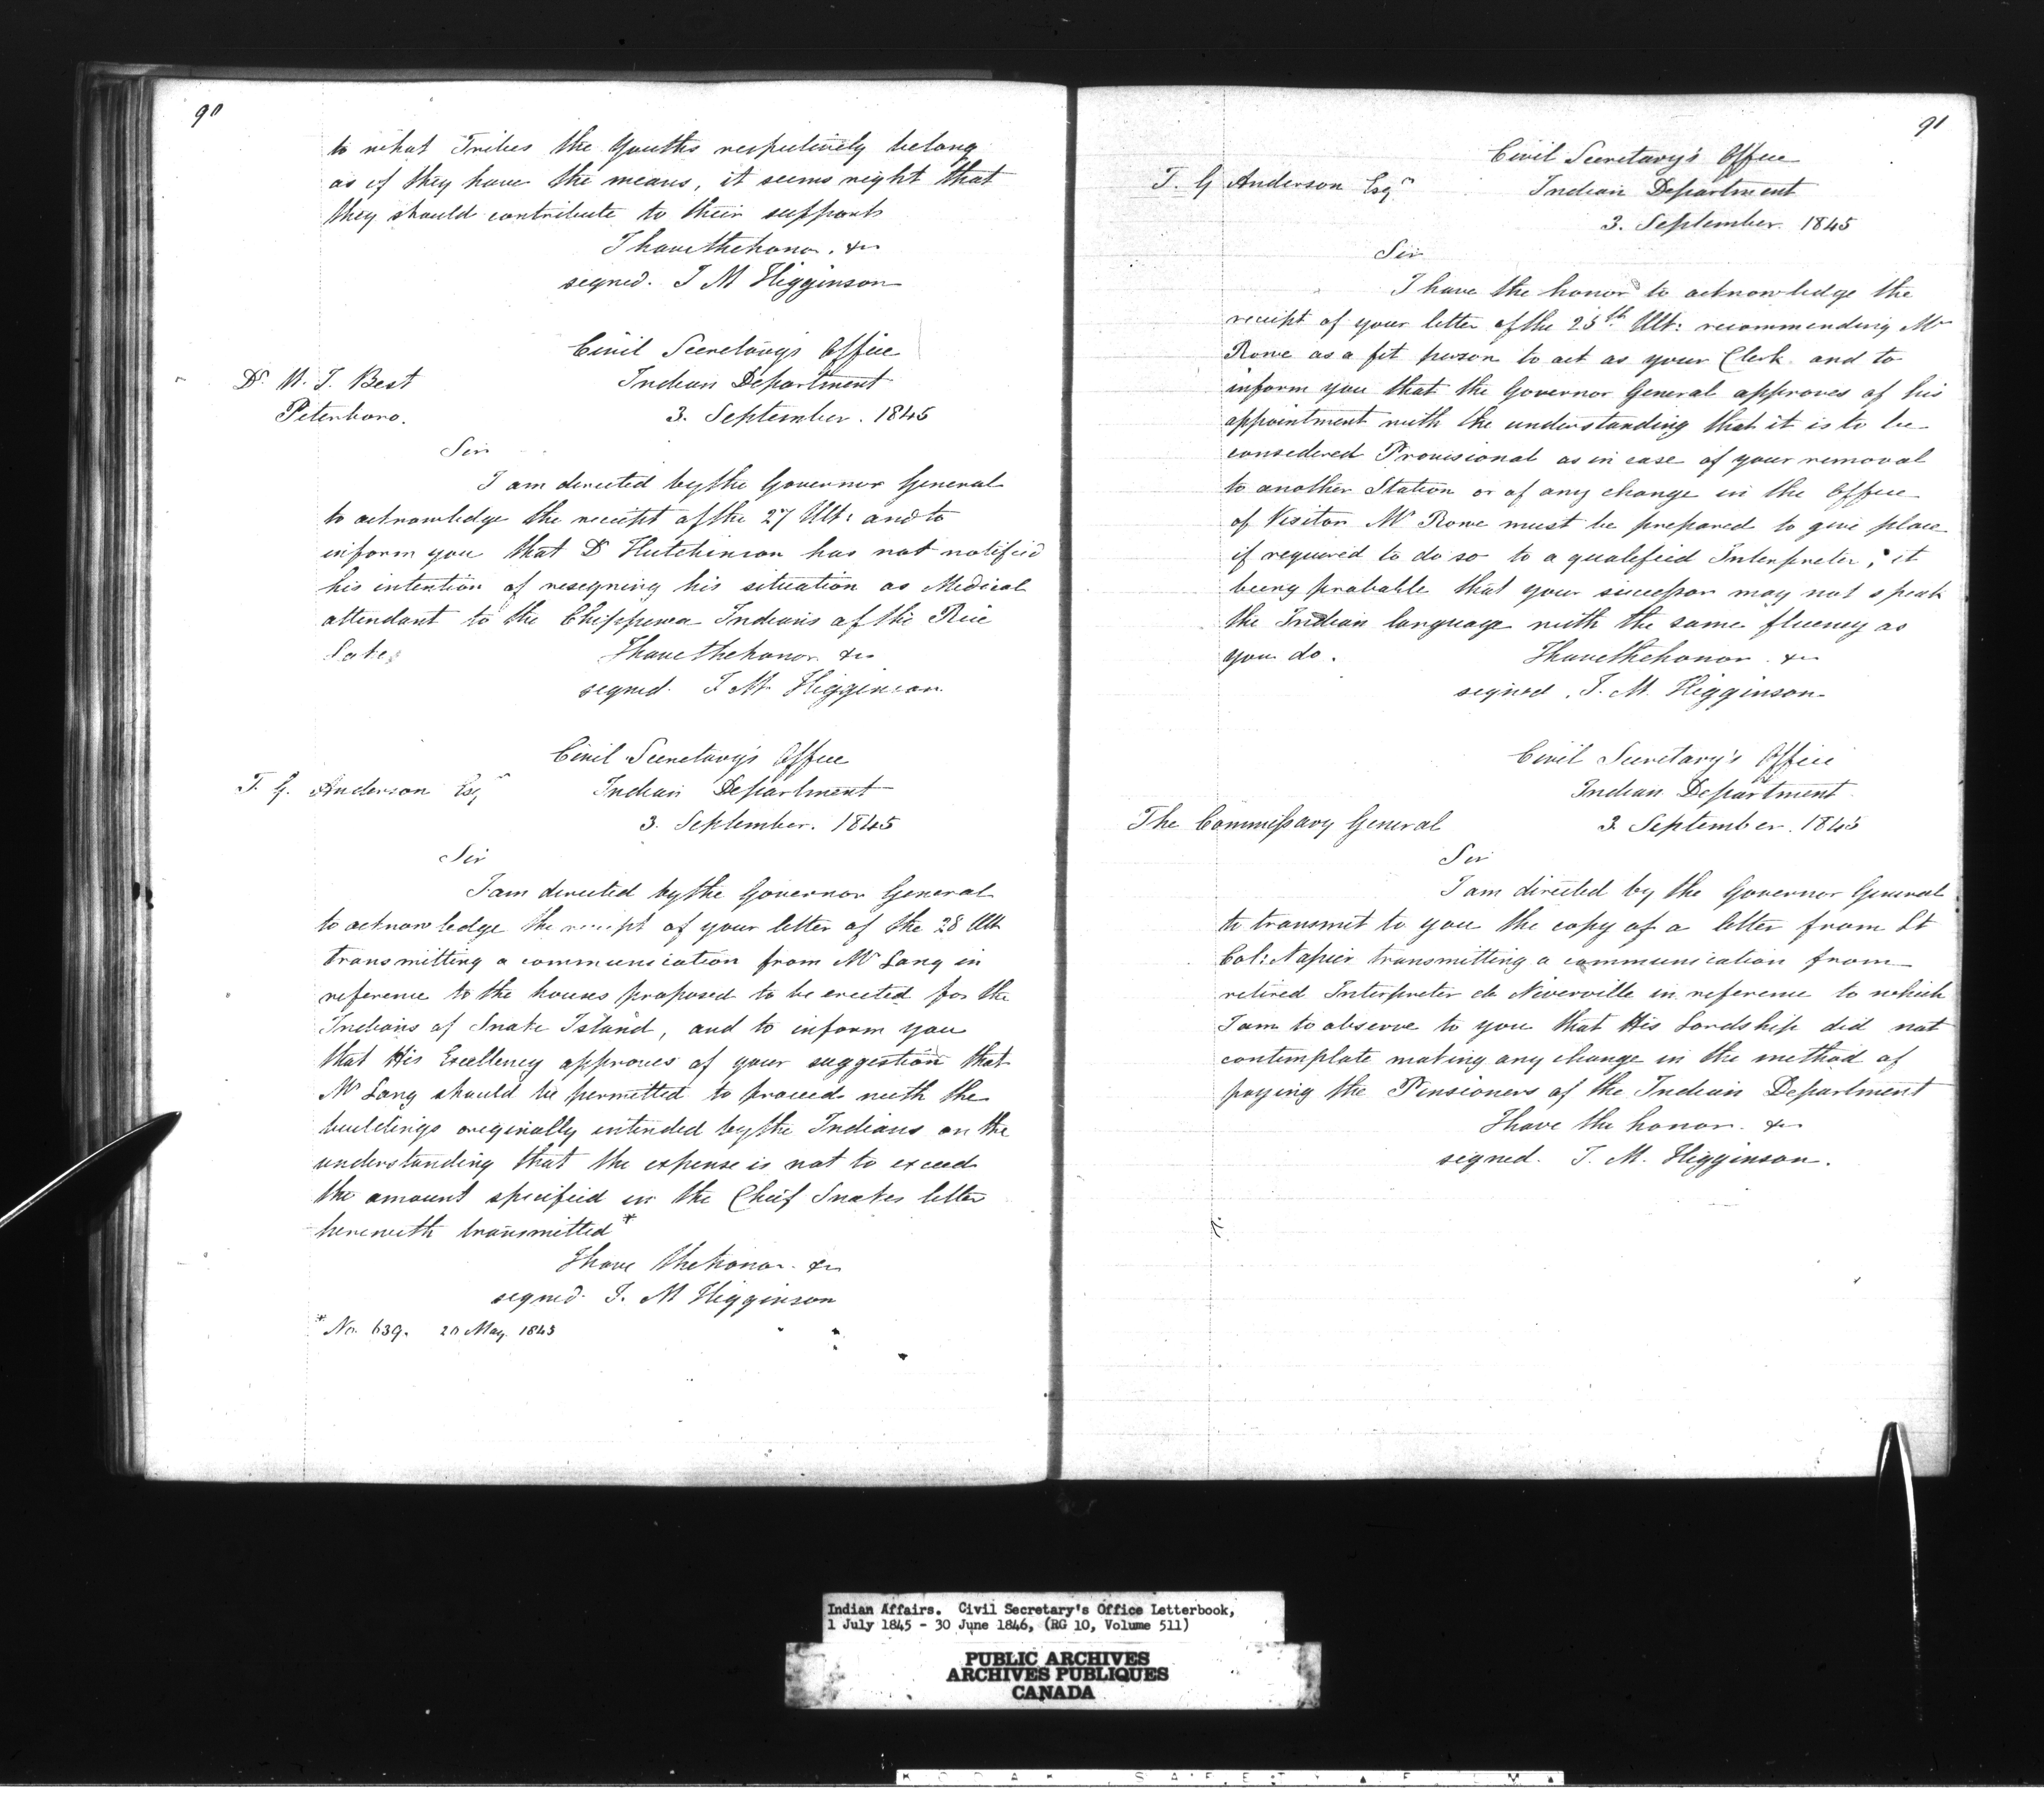 90
to what Tribes the Youths respectively belong
as if they have the means, it seems right that
they should contribute to their support
I have the honor. &c
signed. J M Higginson
Civil Secretary's Office
Dr. W. J. Best
Indian Department
Peterboro.
3. September. 1845
Sir
I am directed by the Governor General
to acknowledge the receipt of the 27 Ult: and to
inform you that Dr Hutchinson has not notified
his intention of resigning his situation as Medical
attendant to the Chippewa Indians of the Rice
Lake,
I have the honor &c
signed. J. M. Higginson.
Civil Secretary's Office
T. G. Anderson Esqr
Indian Department
3. September. 1845
Sir
I am directed by the Governor General
to acknowledge the receipt of your letter of the 28 Ult
transmitting a communication from Mr Lang in
reference to the houses proposed to be erected for the
Indians of Snake Island, and to inform you
that His Excellency approves of your suggestion that
Mr Lang should be permitted to proceed with the
buildings originally intended by the Indians on the
understanding that the expense is not to exceed
the amount specified in the Chief Snakes letter
herewith transmitted*
I have the honor. &c
signed. J. M Higginson
* No. 639. 20 May. 1845
91
Civil Secretary's Office
T. G Anderson Esqr
Indian Department
3. September. 1845
Sir
I have the honor to acknowledge the
receipt of your letter of the 25th. Ult: recommending Mr
Rowe as a fit person to act as your Clerk and to
inform you that the Governor General approves of his
appointment with the understanding that it is to be
considered Provisional as in case of your removal
to another Station or of any change in the Office
of Visitor Mr Rowe must be prepared to give place
if required to do so to a qualified Interpreter; it
being probable that your successor may not speak
the Indian language with the same fluency as
you do.
I have the honor. &c
signed, J. M. Higginson
Civil Secretary's Office
Indian Department
The Commissary General
3 September. 1845
Sir
I am directed by the Governor General
to transmit to you the copy of a letter from Lt
Col: Napier transmitting a communication from
retired Interpreter de Niverville in reference to which
I am to observe to you that His Lordship did not
contemplate making any change in the method of
paying the Pensioners of the Indian Department
I have the honor. &c
signed. J. M. Higginson.
Indian Affairs. Civil Secretary's Office Letterbook,
1 July 1845 - 30 June 1846, (RG 10, Volume 511)
PUBLIC ARCHIVES
ARCHIVES PUBLIQUES
CANADA
KODAK SAFETY FILM